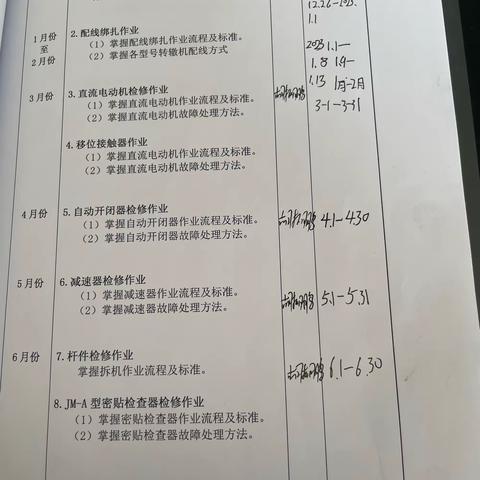 12.26-2023.
1.1
1月份
至
2月份
2.配线绑扎作业
（1）掌握配线绑扎作业流程及标准。
（2）掌握各型号转辙机配线方式
2023 1.1—
1.8 1.9—
1.13 1月-2月
3月份
3.直流电动机检修作业
（1）掌握直流电动机作业流程及标准。
（2）掌握直流电动机故障处理方法。
3-1-3-31
4.移位接触器作业
（1）掌握直流电动机作业流程及标准。
（2）掌握直流电动机故障处理方法。
4月份
5.自动开闭器检修作业
（1）掌握自动开闭器作业流程及标准。
（2）掌握自动开闭器故障处理方法。
4.1-4.30
5月份
6.减速器检修作业
（1）掌握减速器作业流程及标准。
（2）掌握减速器故障处理方法。
5.1-5.31
6月份
7.杆件检修作业
掌握拆机作业流程及标准。
6.1-6.30
8.JM-A 型密贴检查器检修作业
（1）掌握密贴检查器作业流程及标准。
（2）掌握密贴检查器故障处理方法。